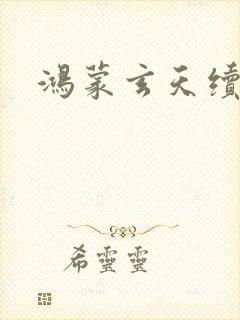 鴻蒙玄天續
希靈靈